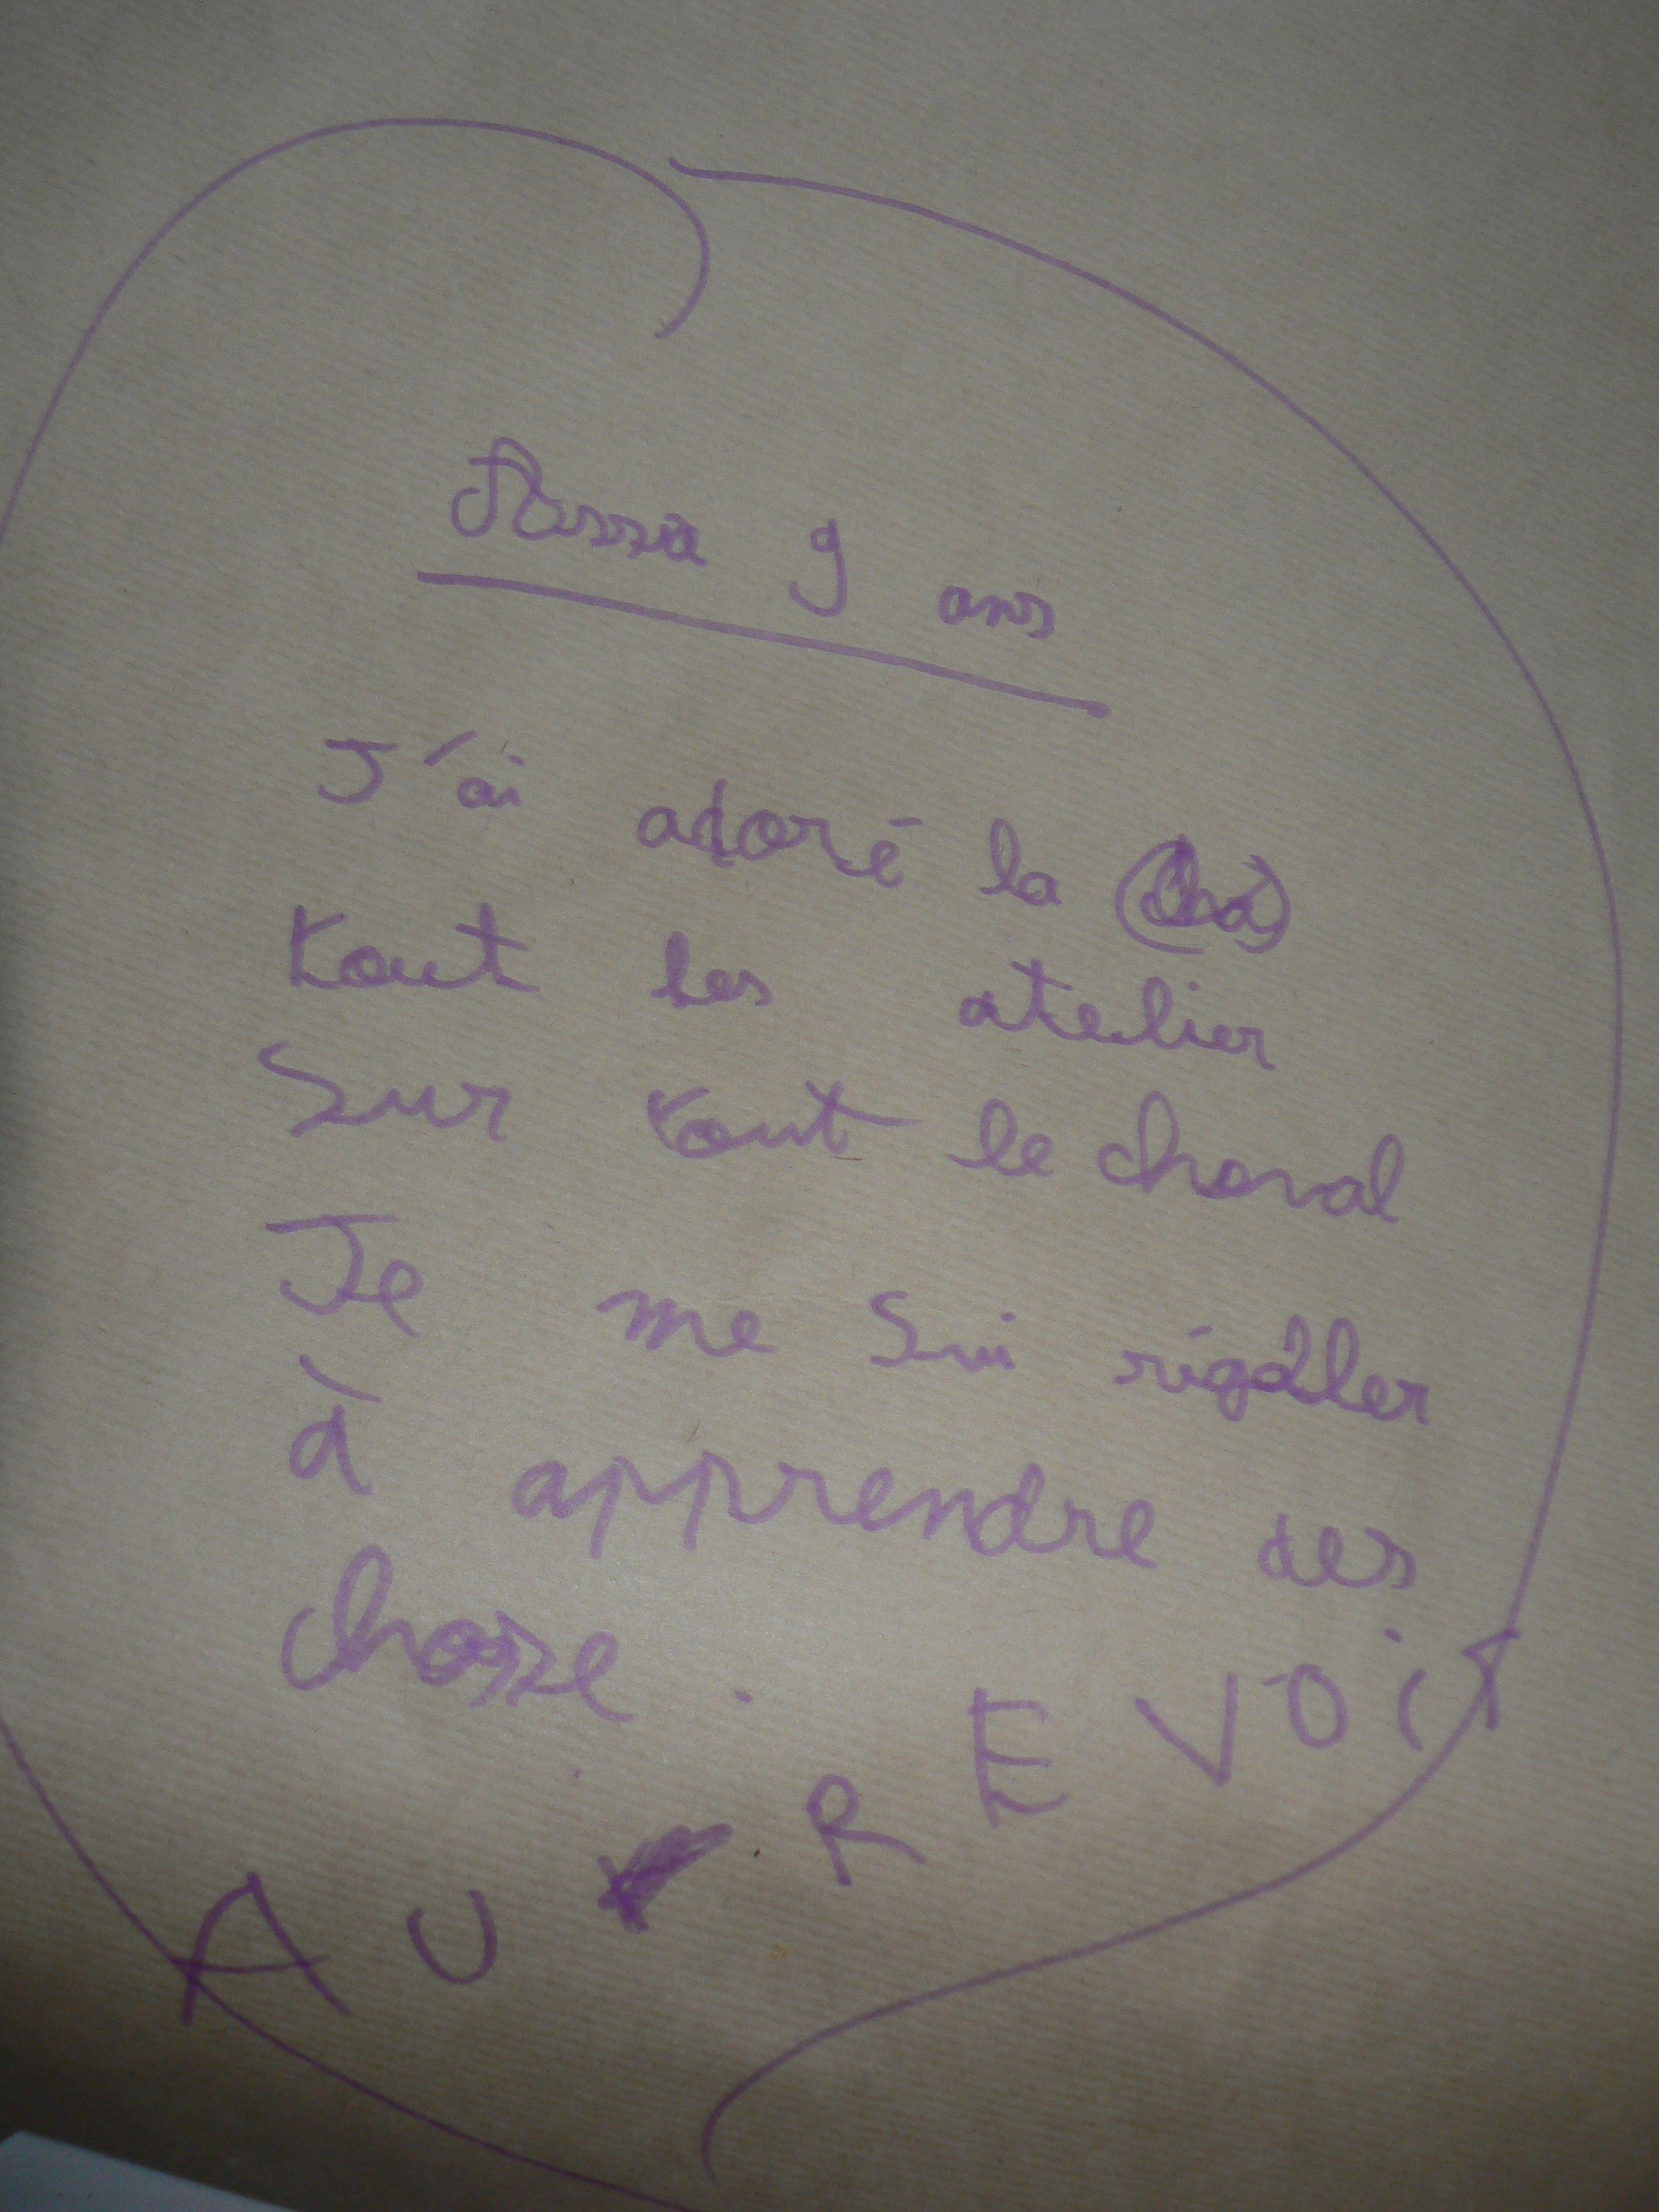 9 ans
J'ai adoré la
tout les atelier
Sur tout le cheval
Je me sui rigoller
à apprendre des
chose.
AU REVOIR